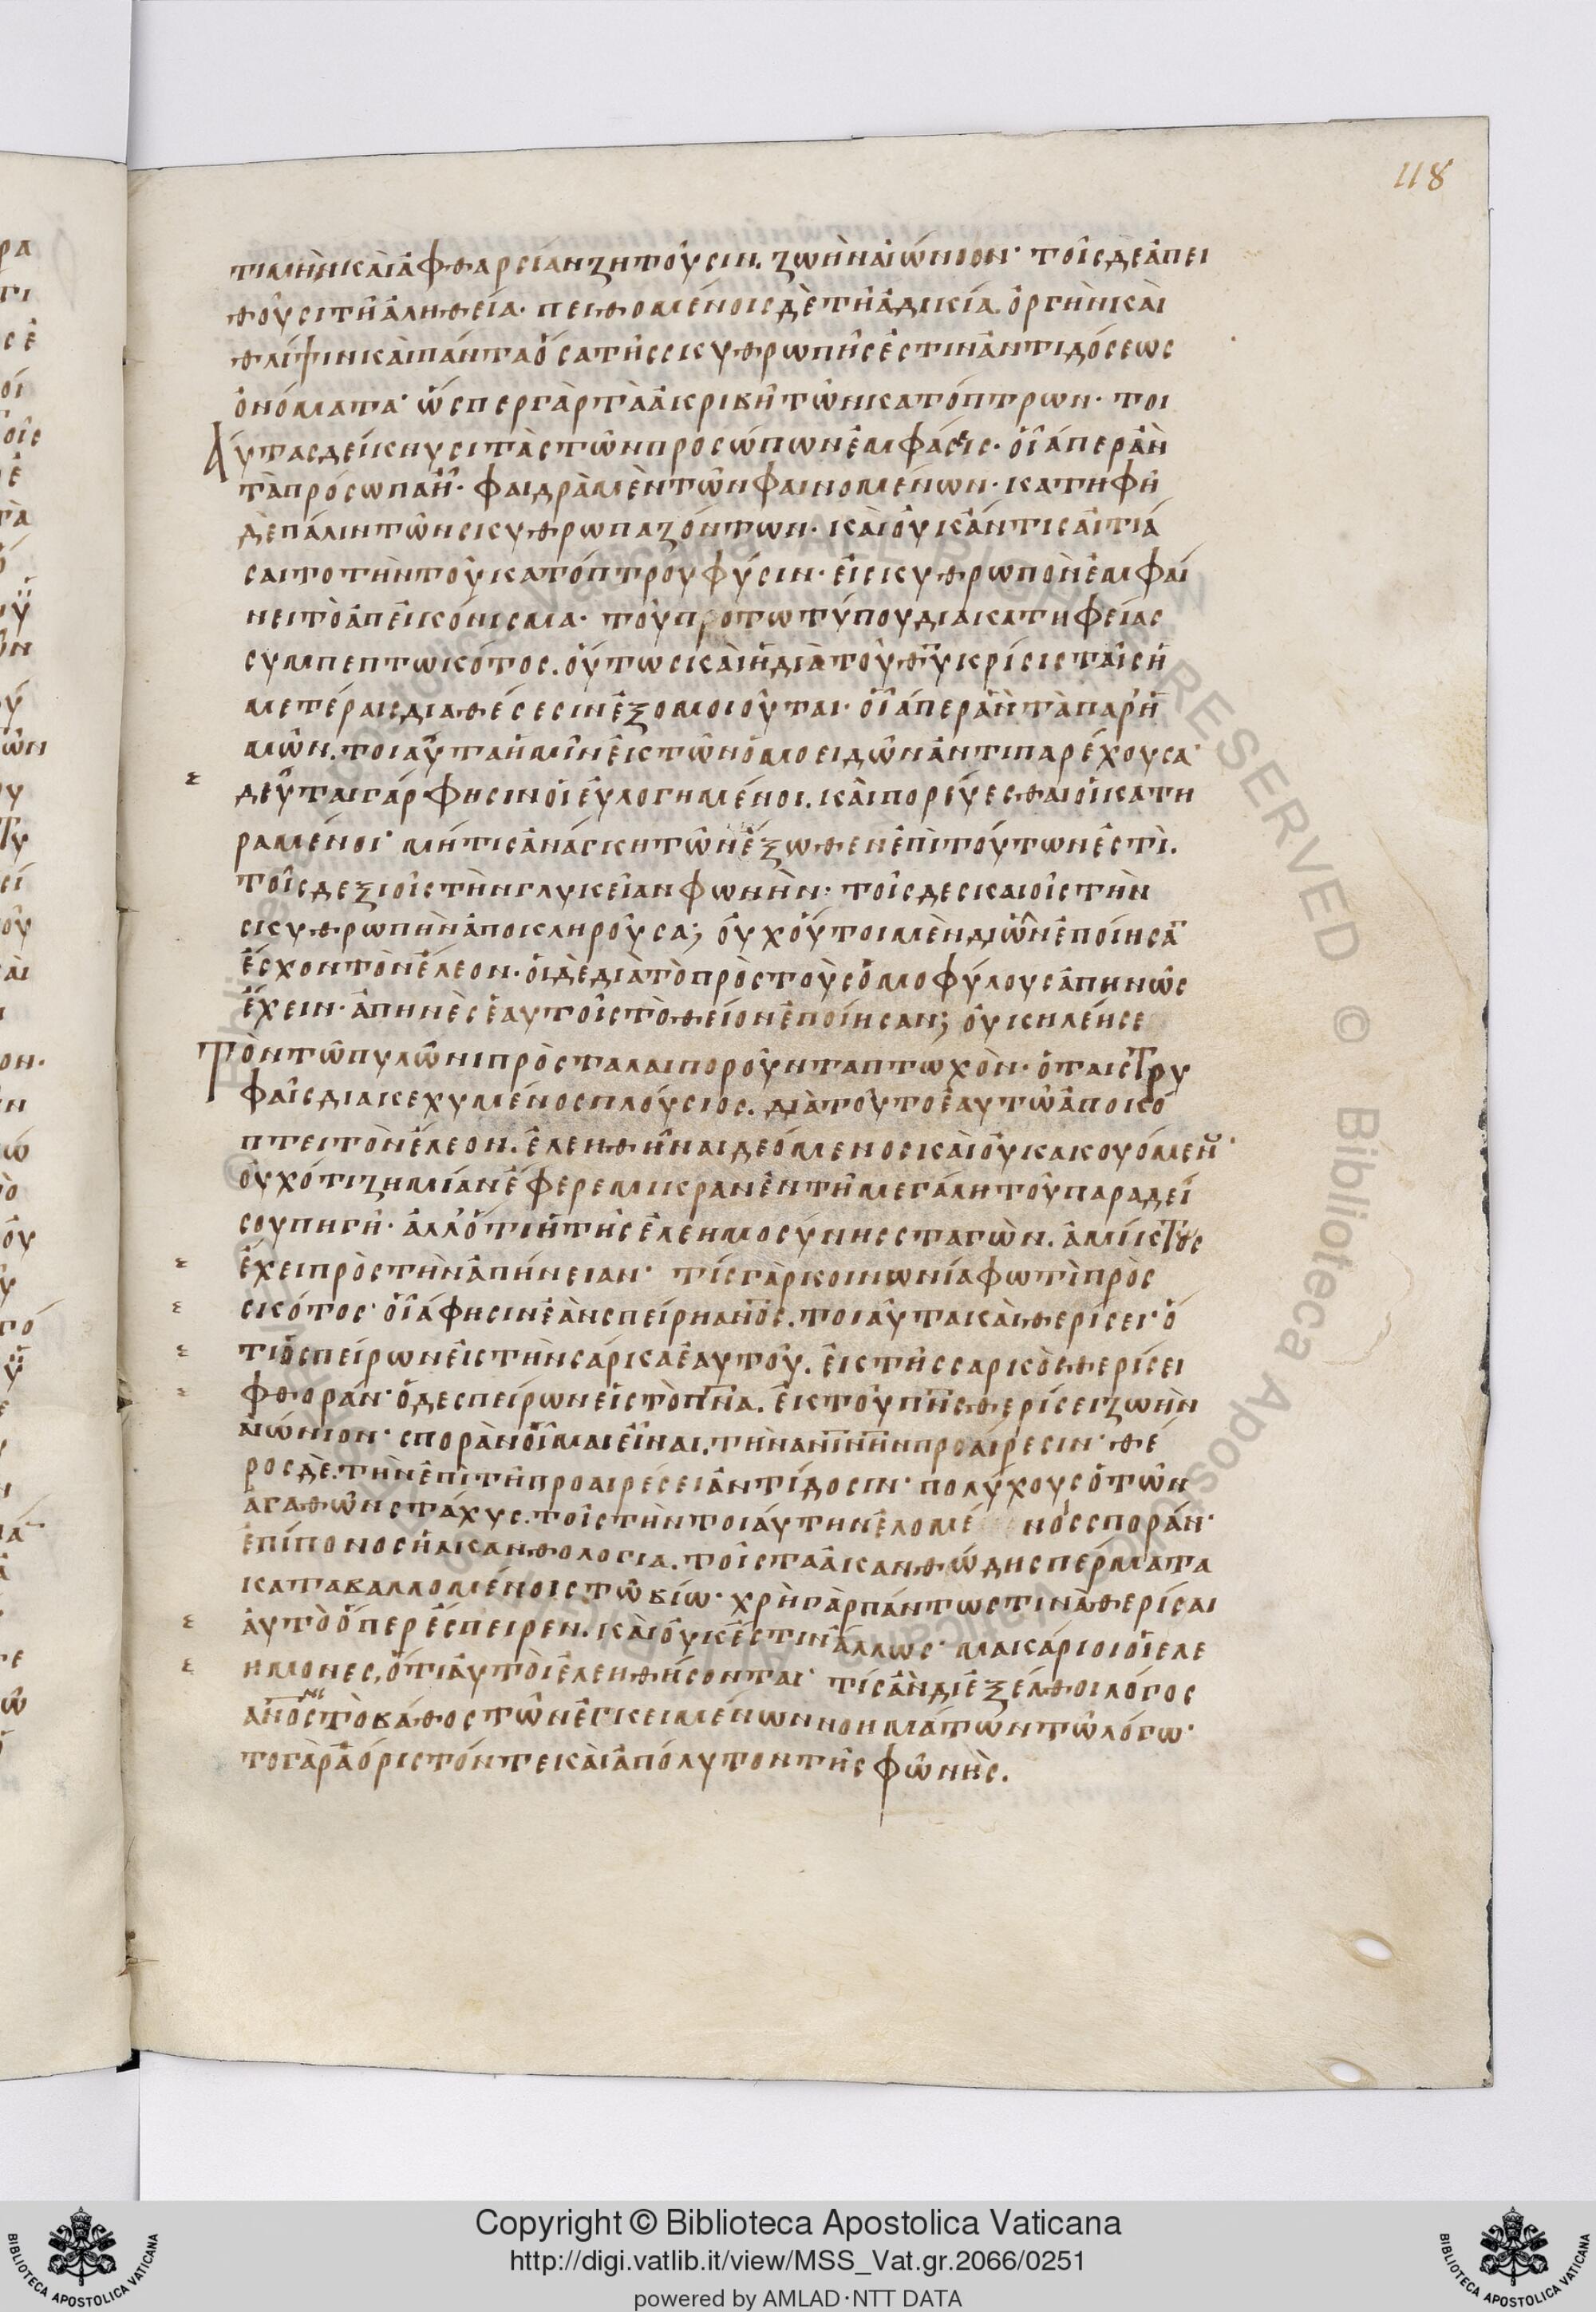 118
τιμὴν καὶ ἀφθαρσίαν ζητοῦσιν. ζωὴν αἰώνιον· τοῖς δὲ ἀπει
θοῦσι τῆ ἀληθεία· πειθομένοις δὲ τῆ ἀδικία. ὀργὴν καὶ
θλίψιν καὶ πάντα ὅσα τῆς σκυθρωπῆς ἐστιν ἀντιδόσεως
ὀνόματα· ὥσπερ γὰρ τὰ ἀκριβῆ τῶν κατόπτρων· τοι
αύτας δείκνυσι τὰς τῶν προσώπων ἐμφάσεις· οἷάπερ ἂν
τὰ πρόσωπα ἦ· φαιδρὰ μὲν τῶν φαινομένων· κατηφῆ
δὲ πάλιν τῶν σκυθρωπαζόντων· καὶ οὐκ ἄν τις αἰτιά
σαιτο τὴν τοῦ κατόπτρου φύσιν· εἰ σκυθρωπὸν ἐμφαί
νει τὸ ἀπεικόνισμα· τοῦ πρωτοτύπου διὰ κατηφείας
συμπεπτωκότος. οὕτως καὶ ἡ διὰ τοῦ θυ κρίσις ταῖς ἡ
μετέραις διαθέσεσιν ἐξομοιοῦται· οἷάπερ ἂν τὰ παρ' ἡ
μῶν. τοιαῦτα ἡμῖν ἐκ τῶν ὁμοειδῶν ἀντιπαρέχουσα·
δεῦται γάρ φησιν οἱ εὐλογημένοι. καὶ πορεύεσθαι οἱ κατη
ραμένοι· μή τις ἀνάγκη τῶν ἔξωθεν ἐπὶ τούτων ἐστὶ.
τοῖς δεξιοῖς τὴν γλυκεῖαν φωνὴν· τοῖς δε σκαιοῖς τὴν
σκυθρωπὴν ἀποκληροῦσα; οὐχ οὗτοι μὲν δι ὧν ἐποίησα
ἔσχον τὸν ἔλεον· οἱ δὲ διὰ τὸ πρὸς τοὺς ὁμοφύλους ἀπηνῶς
ἔχειν· ἀπηνὲς ἑαυτοῖς τὸ θεῖον ἐποίησαν; οὐκ ἠλέησε
τὸν τῶ πυλῶνι προσταλαιποροῦντα πτωχὸν· ὁ ταῖς τρυ
φαῖς διακεχυμένος πλούσιος. διὰ τοῦτο ἑαυτῶ ἀποκό
πτει τὸν ἔλεον. ἐλεηθῆναι δεόμενος καὶ οὐκ ακουόμεν·
οὐχ ότι ζημίαν ἔφερε μικρὰν ἐν τῆ μεγάλη τοῦ παραδεί
σου πηγῆ· ἀλλ' ὅτι ἡ τῆς ἐλεημοσύνης σταγὼν. ἀμίκτως
ἔχει πρὸς τὴν ἀπήνειαν· τίς γὰρ κοινωνία φωτὶ πρὸς
σκότος· οἷά φησιν ἐὰν σπείρη ανος. τοιαῦτα καὶ θερίσει· ὅ
τι ὁ σπείρων εἰς τὴν σάρκα ἑαυτοῦ. ἐκ τῆς σαρκὸς θερίσει
φθοράν· ὁ δε σπείρων εἰς τὸ πνα. ἐκ τοῦ πνς θερίσει ζωὴν
αἰώνιον· σπορὰν οἶμαι εἶναι. τὴν ανινην προαίρεσιν· θέ
ρος δὲ. τὴν ἐπὶ τῆ προαιρέσει ἀντίδοσιν· πολύχους ὁ τῶν
ἀγαθῶν στάχυς. τοῖς τὴν τοιάυτην ἑλομένοις σποράν·
ἐπίπονος ἡ ακανθολογία. τοῖς τα ἀκανθώδη σπέρματα
καταβαλλομένοις τῶ βίω· χρὴ γὰρ πάντως τινὰ θερίσαι
αὐτὸ ὅπερ ἔσπειρεν. καὶ οὐκ ἔστιν ἄλλως· μακάριοι οἱ ελε
ημονες, ὅτι αὐτοὶ ἐλεηθήσονται· τίς ἂν διεξέλθοι λόγος
ανος τὸ βάθος τῶν ἐγκειμένων νοημάτων τῶ λόγω·
το γὰρ ἀόριστόν τε καὶ ἀπόλυτον τῆς φωνὴς.
Copyright © Biblioteca Apostolica Vaticana
http://digi.vatlib.it/view/MSS_Vat.gr.2066/0251
powered by AMLAD·NTT DATA